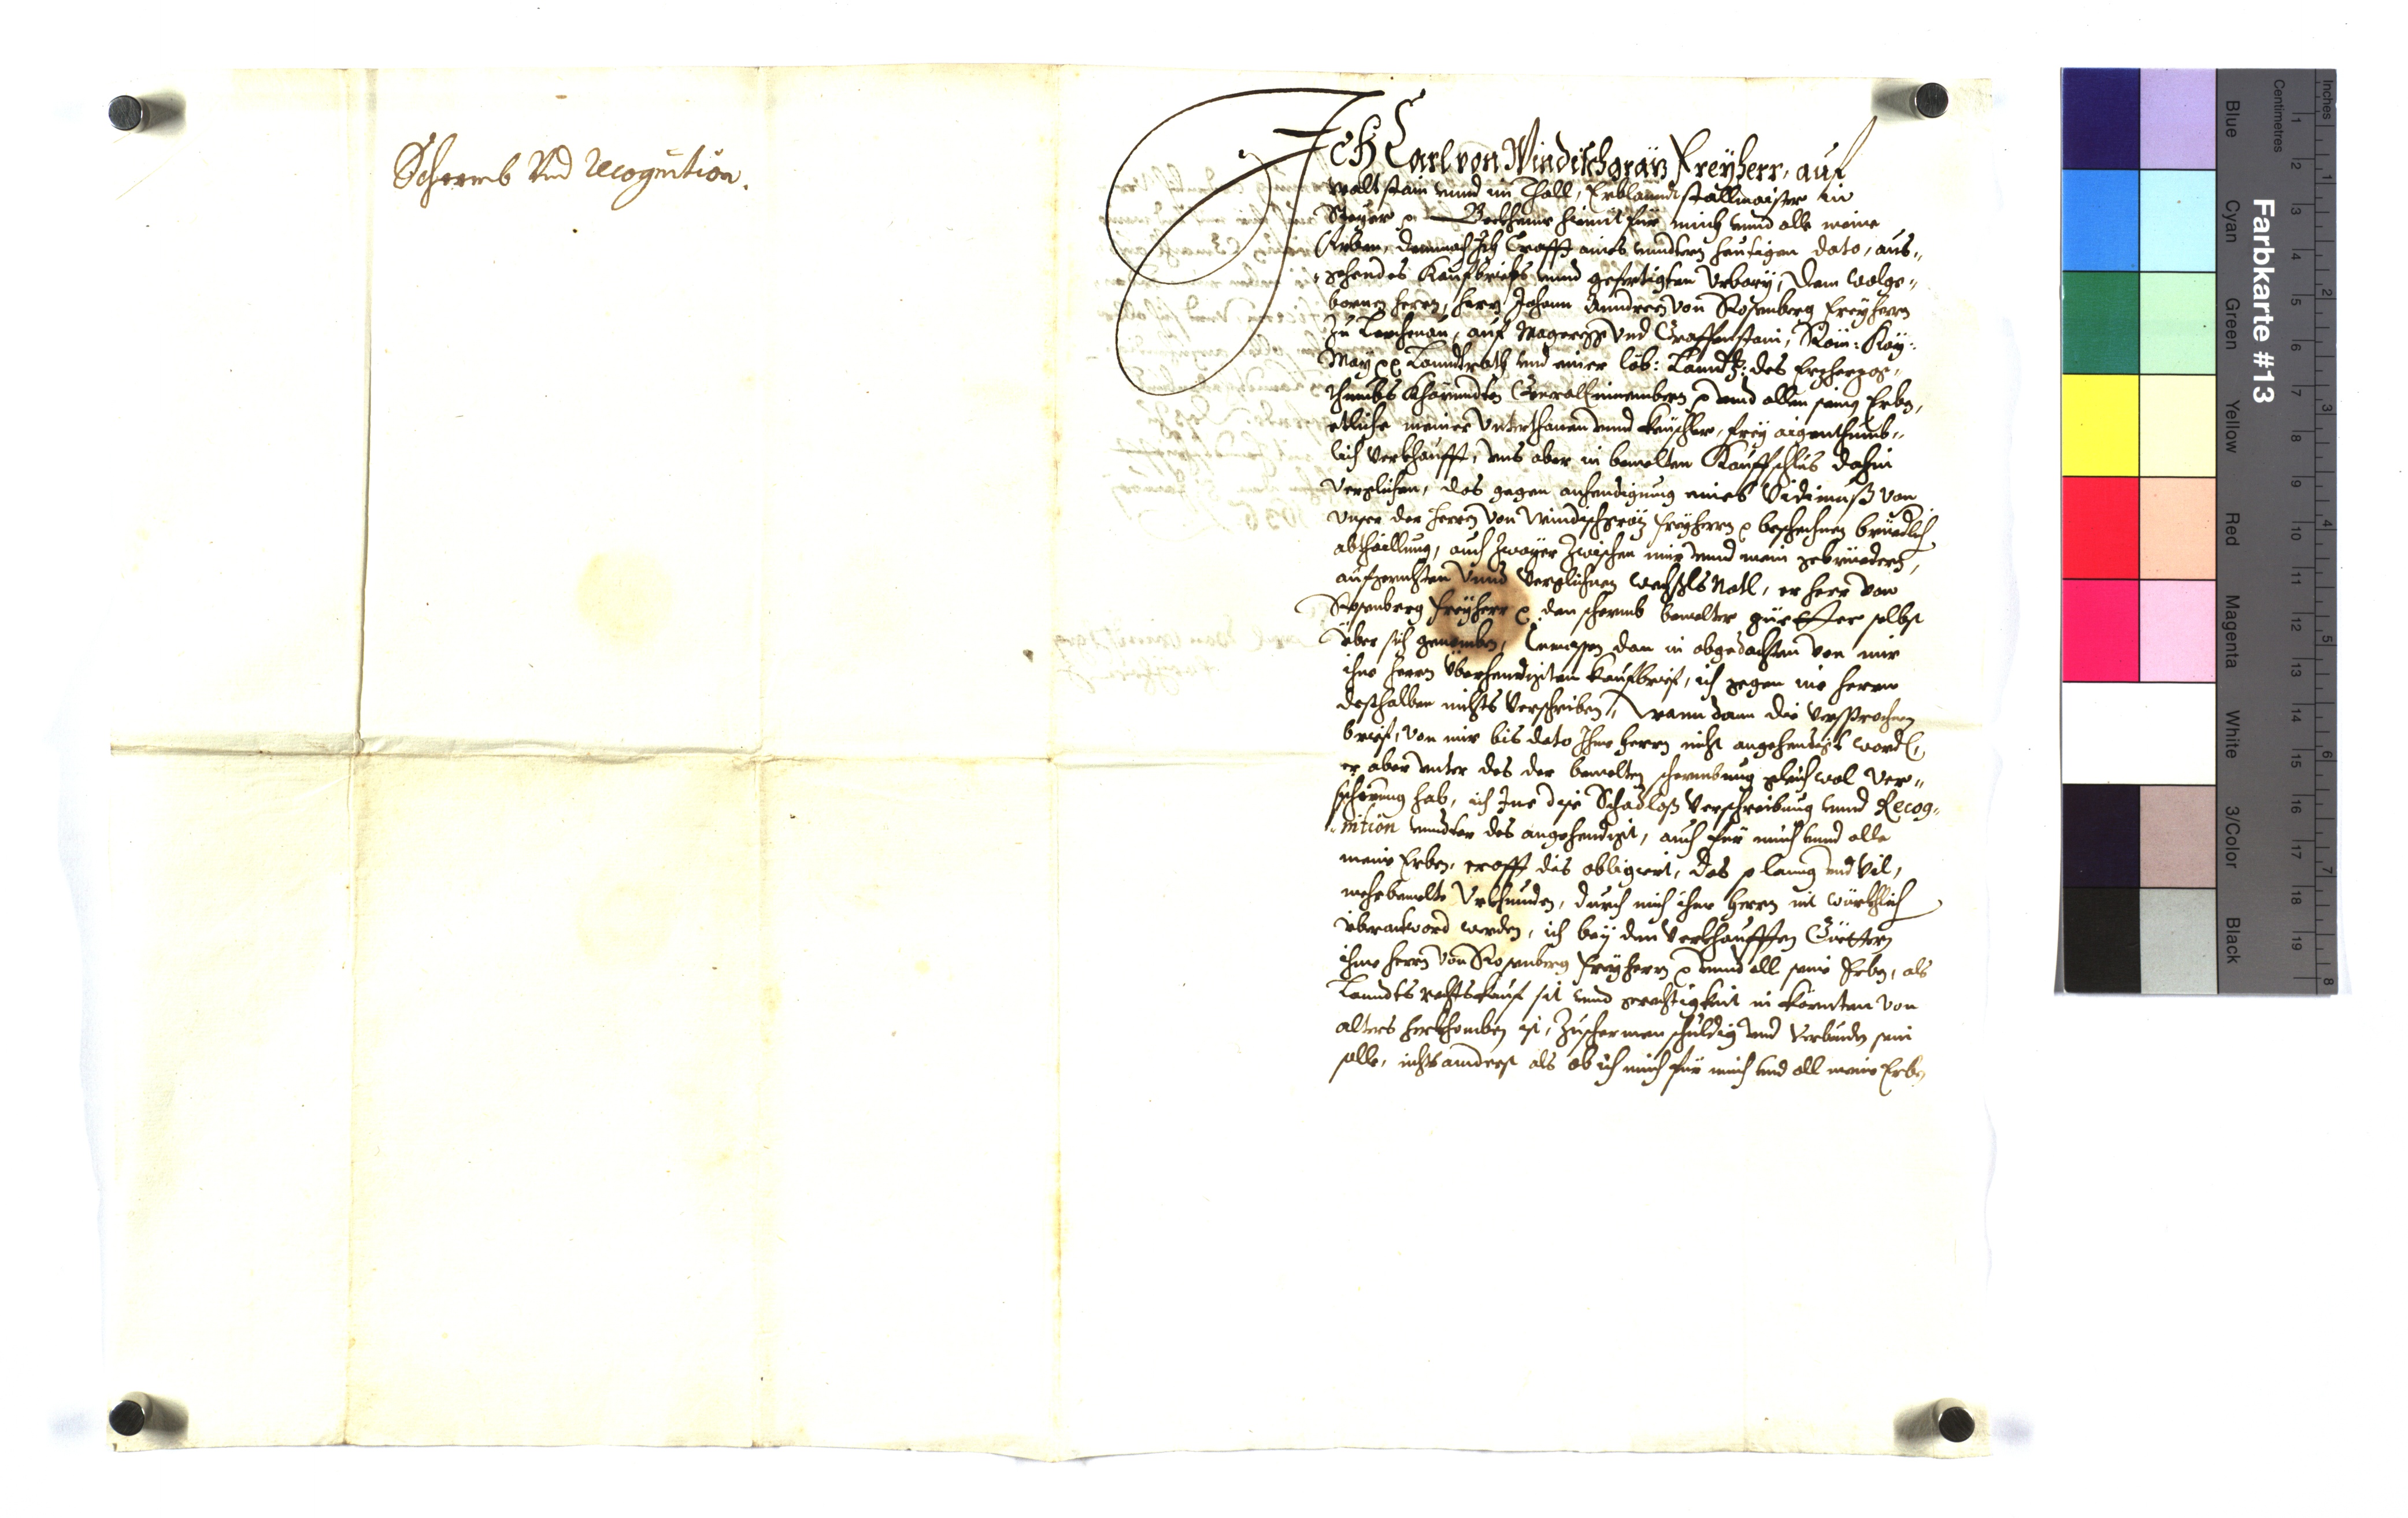 Schermb Vnd Recognition.
Ich Carl von Windischgräz Freyherr, auf
waltstain vnnd im Thall, Erblanndtstallmaister in
Steyer p. Bekhenne hiemit für mich vnnd alle meine
Erben, demnach Ich Crafft aines vnndtern heutigen dato, aus„
„gehendes Kaufbriefs vnnd gefertigten Vrbary, dem wolge„
bornen herrn, herrn Johann Anndreen von Rosenberg Freyherrn
zu Lerchenau, auf Mageregg Vnd Graffenstain, Röm: Kay:
May: Lanndtrath vnd einer löb: Landtsch: des Erzherzog„
thumbs Khärndten General Einnember p vnd allen seinen Erben,
etliche meiner Vnterthanen vnnd keuschler, frey aigenthumb„
lich Verkhaufft, vns aber in bemelten Kauffschlus dahin
Verglichen, das gegen anhendigung eines Vidimuß von
Vnser der herrn Von Windischgräz Freyherrn p beschechnen brüederlich
abthaillung, auch zwayer zwischen mir vnnd mein gebrüedern,
aufgerichten Vnnd Verglichnen wechsls Notl, er herr Von
Rosenberg Freyherr p. den schermb bemelter güetter selbst
über sich genomben, Inmassen dan in obgedachten von mir
ihme herrn Überhendigten kaufbrief, ich gegen ine herrn
desthalben nichts Verschriben, Wann dann die Versprochnen
brief, von mir bis dato Ihme herrn nicht angehendigt wordn,
er aber vnter des der bemelten schermbung gleichwol Ver„
sicherung hab, ich Ine dise Schadloß Verschreibung vnnd Recog„
„nition vnndter des angehendigt, auch für mich vnnd alle
meine Erben, crafft dis obligiert, das so lanng vnd Vil,
mehrbemelte Vrkhunden, durch mich ihme herrn nit würkhlich
überantword werden, ich bey den Verkhaufften Güettern
ihme herrn Von Rosenberg Freyherrn p vnnd all seine Erben, als
Lanndts rechts kauf sit vnnd gerechtigkeit in kärnten von
alters herkhomben ist, zuschermen schuldig vnd Verbunden sein
solle, nichts anderst als ob ich mich für mich vnd all meine Erben
Farbkarte #13
Blue Cyan Green Yellow Red Magenta White 3/Color Black
Centimetres
1 2 3 4 5 6 7 8 9 10 11 12 13 14 15 16 17 18 19
Inches
1 2 3 4 5 6 7 8